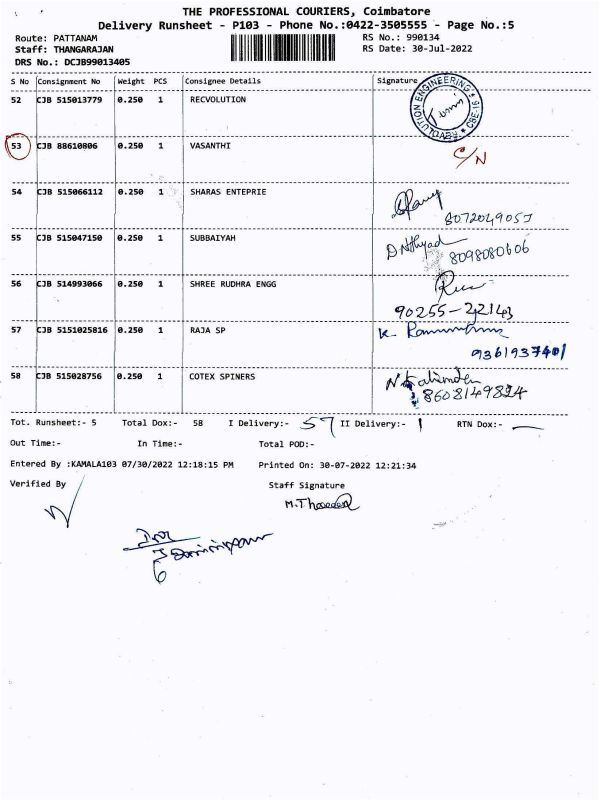 THE PROFESSIONAL COURIERS, Coimbatore
Delivery Runsheet - P103 - Phone No.:0422-3505555 - Page No.:5
Route: PATTANAM RS No.: 990134
Staff: THANGARAJAN RS Date: 30-Jul-2022
DRS No.: DCJB99013405
S No Consignment No Weight PCS Consignee Details Signature
52 CJB 515013779 0.250 1 RECVOLUTION
REVOLUTION ENGINEERING * CBE-16 *
53 CJB 88610806 0.250 1 VASANTHI C/N
54 CJB 515066112 0.250 1 SHARAS ENTEPRIE
8072049053
55 CJB 515047150 0.250 1 SUBBAIYAH
8098080606
56 CJB 514993066 0.250 1 SHREE RUDHRA ENGG
90255-22143
57 CJB 5151025816 0.250 1 RAJA SP
9361937401
58 CJB 515028756 0.250 1 COTEX SPINERS
8608149824
Tot. Runsheet:- 5 Total Dox:- 58 I Delivery:- 57 II Delivery:- 1 RTN Dox:- —
Out Time:- In Time:- Total POD:-
Entered By :KAMALA103 07/30/2022 12:18:15 PM Printed On: 30-07-2022 12:21:34
Verified By Staff Signature